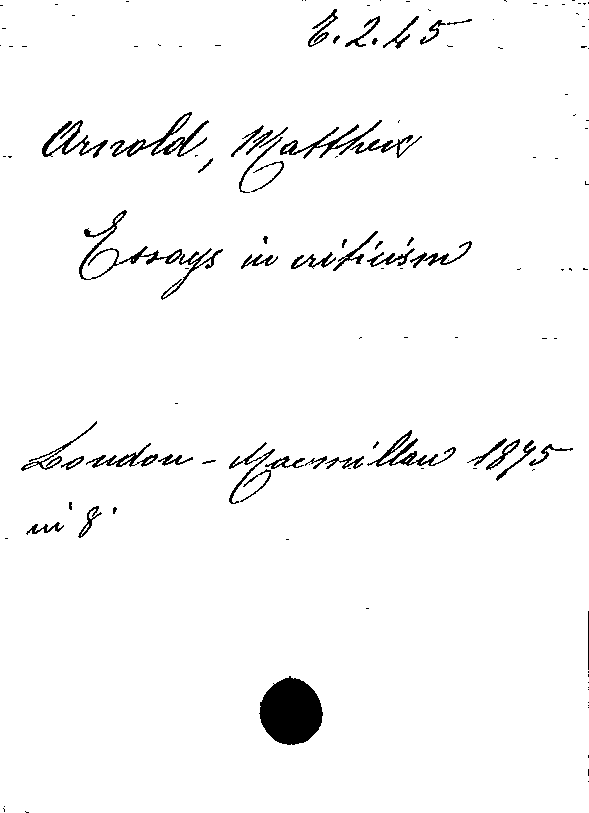 E.2.45
Arnold, Matthew
Essays in criticism
London - Macmillan 1895
in 8°